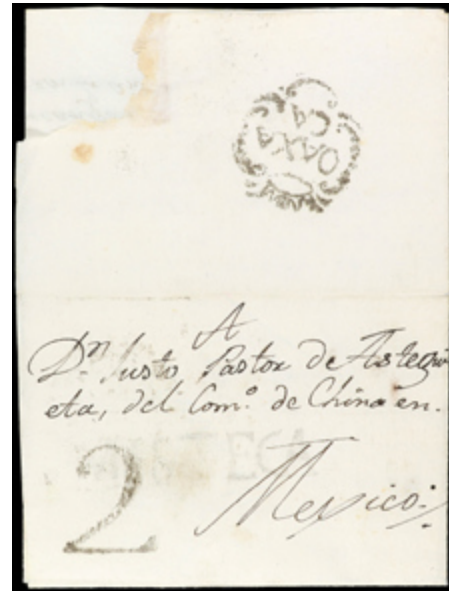 OAXA
CA
A
Dn. Justo Pastor de Astegui
eta, del Como. de China en.
2
Mexico.